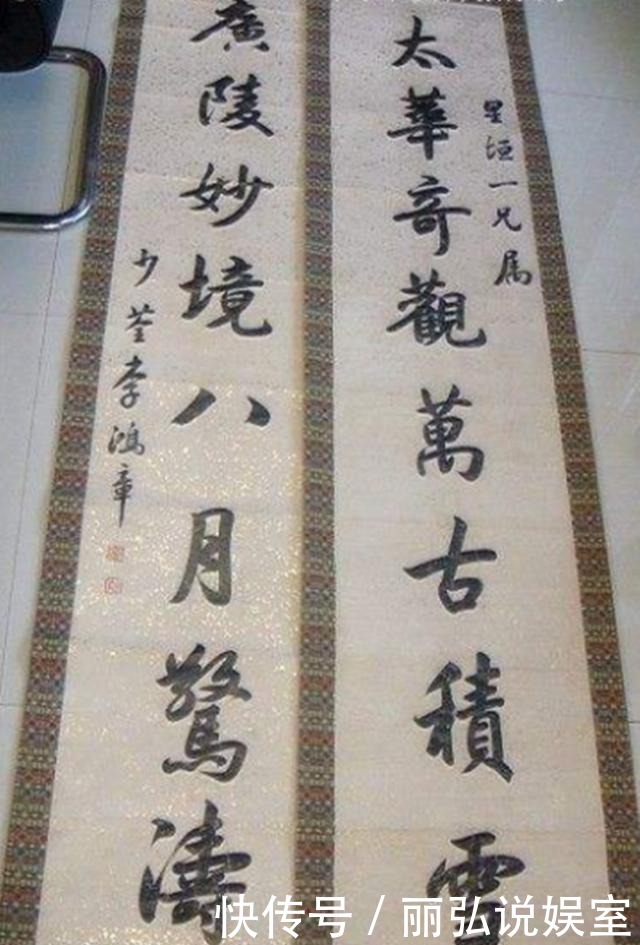 星垣一兄属
太華奇觀萬古積雪
廣陵妙境八月驚濤
少荃李鴻章
快传号 / 丽弘说娱室